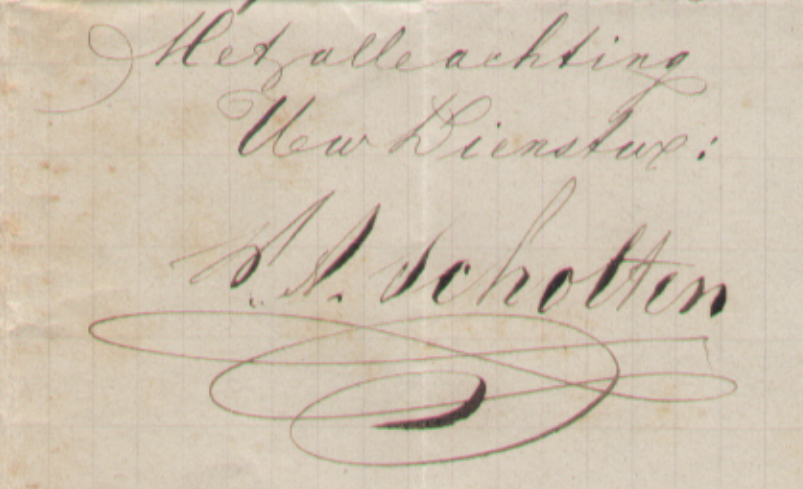 Met alle achting
Uew Dienstwe:
W. A. Scholten